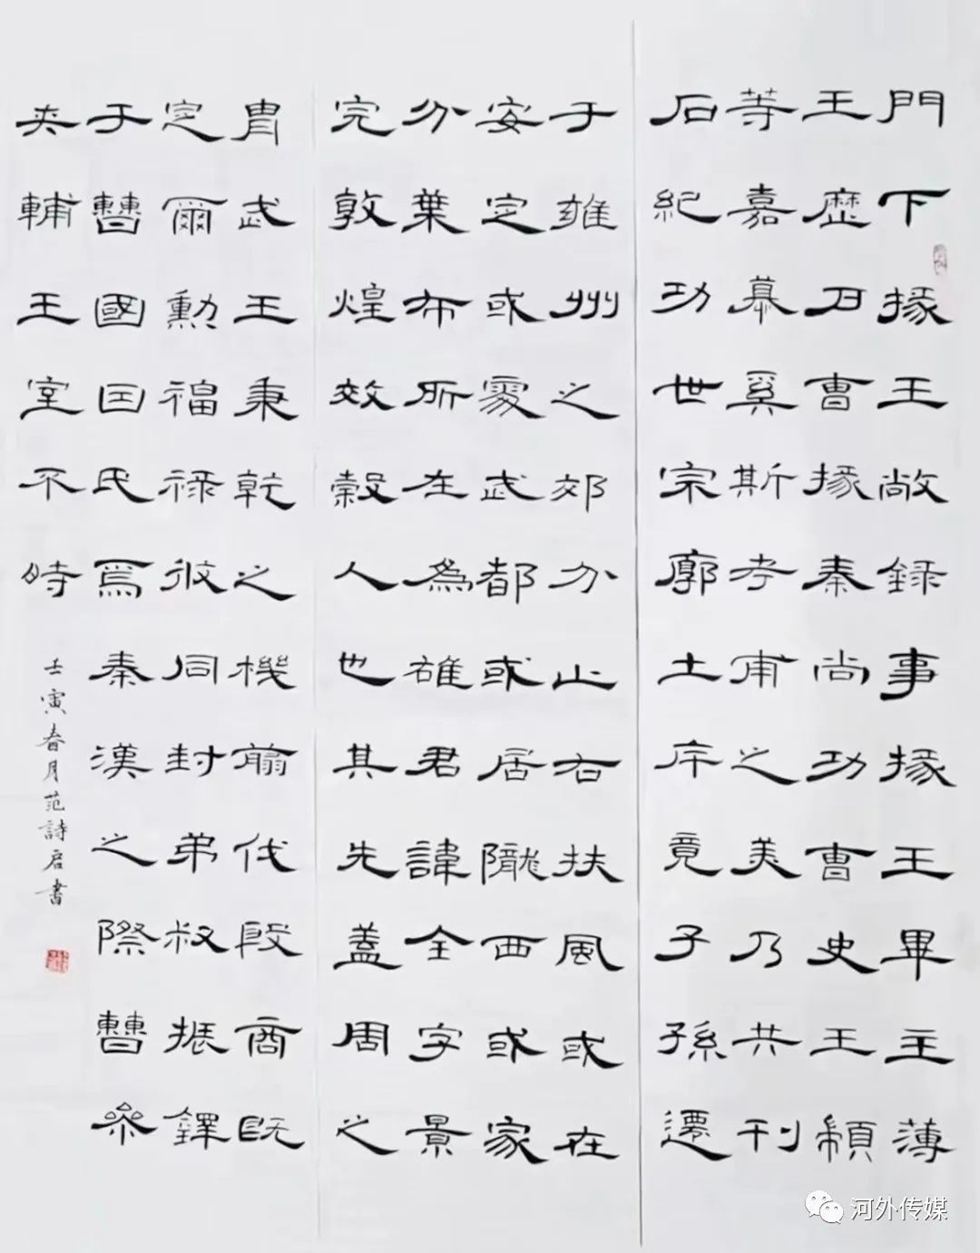 門下掾王敞録事掾王畢主薄
王歷户曹掾秦尚功曹史王顓
等嘉慕奚斯考甫之美乃共刊
石紀功世宗廓土斥竟子孫遷
于雍州之郊分止右扶風或在
安定或處武都或居隴西或家
分葉布所在為雄君諱全字景
完敦煌效穀人也其先蓋周之
胄武王秉乾之機翦伐殷商既
定爾勳福祿攸同封弟叔振鐸
于曹國因氏焉秦漢之際曹參
夾輔王室不時
壬寅春月范詩君書
河外传媒